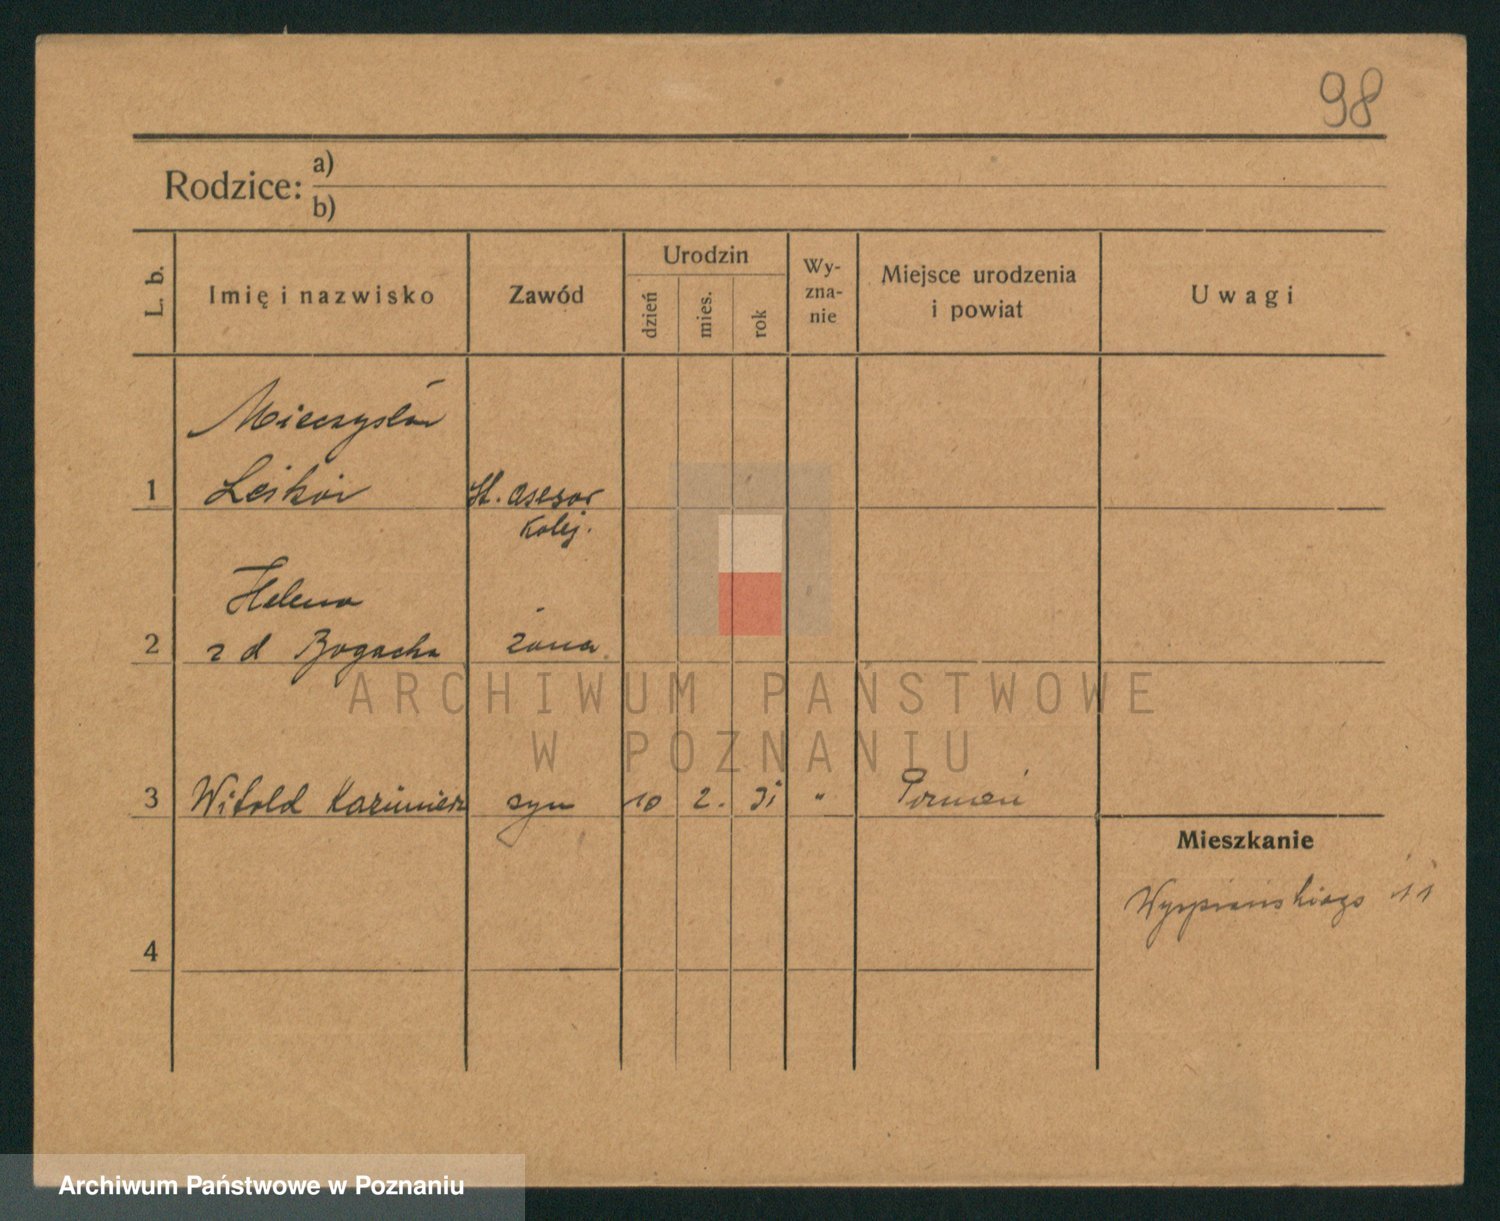 98
Rodzice:
a)
b)
L. b.
Imię i nazwisko
Zawód
Urodzin
dzień
mies.
rok
Wy-
zna-
nie
Miejsce urodzenia
i powiat
Uwagi
Mieczysław
1
St. asesor
kolej.
Helena
2 z d Bogacka żona
3 Witold Kazimierz syn 10 2. 31 " Poznań
Mieszkanie
Wyspiańskiego 11
4
ARCHIWUM PAŃSTWOWE
W POZNANIU
Archiwum Państwowe w Poznaniu